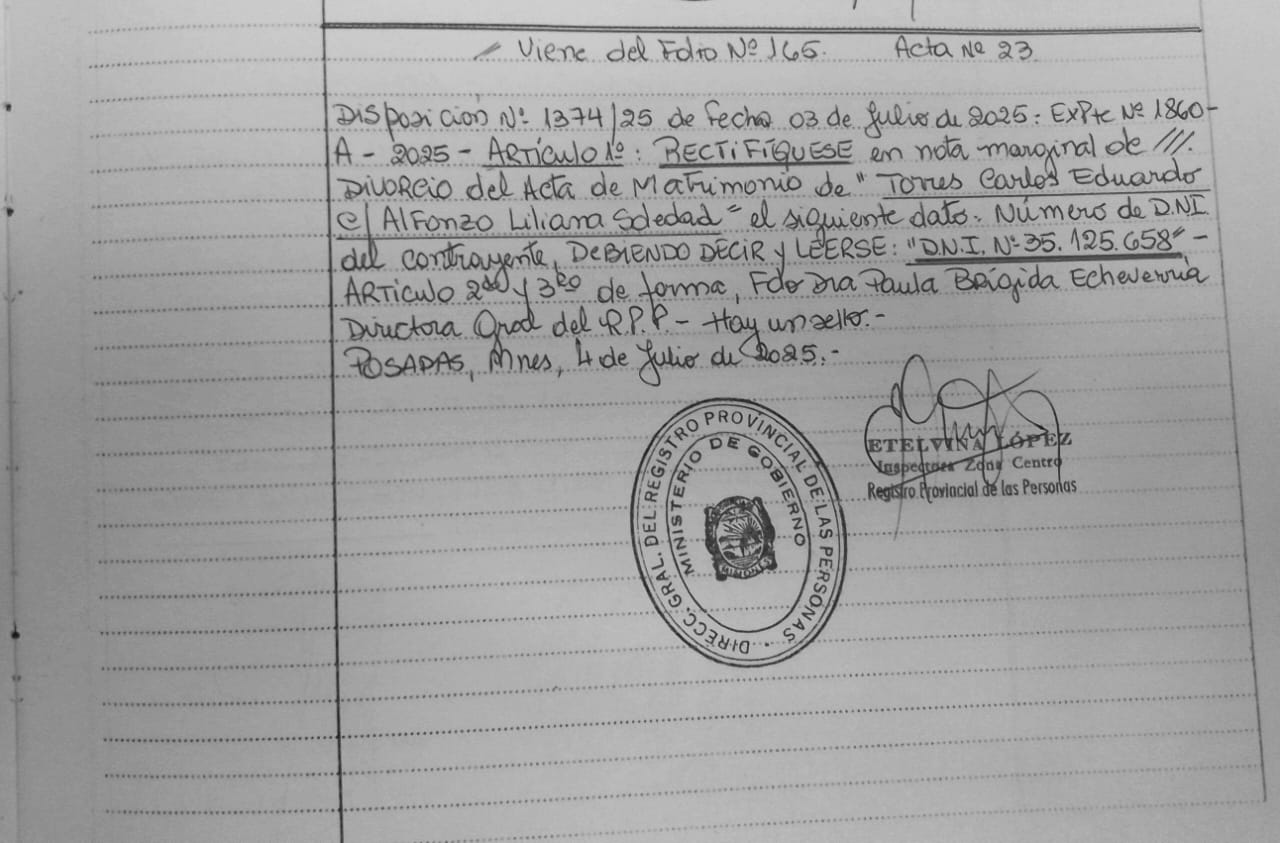 Viene del Folio Nº 165. Acta Nº 23.
Disposición Nº 1374/25 de fecha 03 de Julio de 2025: ExPte Nº 1860-
A - 2025 - ARTÍCULO 1º: RECTIFÍQUESE en nota marginal de ///.
DIVORCIO del Acta de Matrimonio de "Torres Carlos Eduardo
c/ Alfonzo Liliana Soledad" el siguiente dato: Número de D.N.I.
del contrayente, DEBIENDO DECIR y LEERSE: "D.N.I. Nº 35.125.658" -
ARTÍCULO 2do y 3ro de forma, Fdo Dra Paula Brígida Echeverría
Directora Gral del R.P.P. - Hay un sello.-
POSADAS, Mnes, 4 de Julio de 2025.-
DIRECC. GRAL. DEL REGISTRO PROVINCIAL DE LAS PERSONAS
MINISTERIO DE GOBIERNO
MISIONES
ETELVINA LÓPEZ
Inspectora Zona Centro
Registro Provincial de las Personas